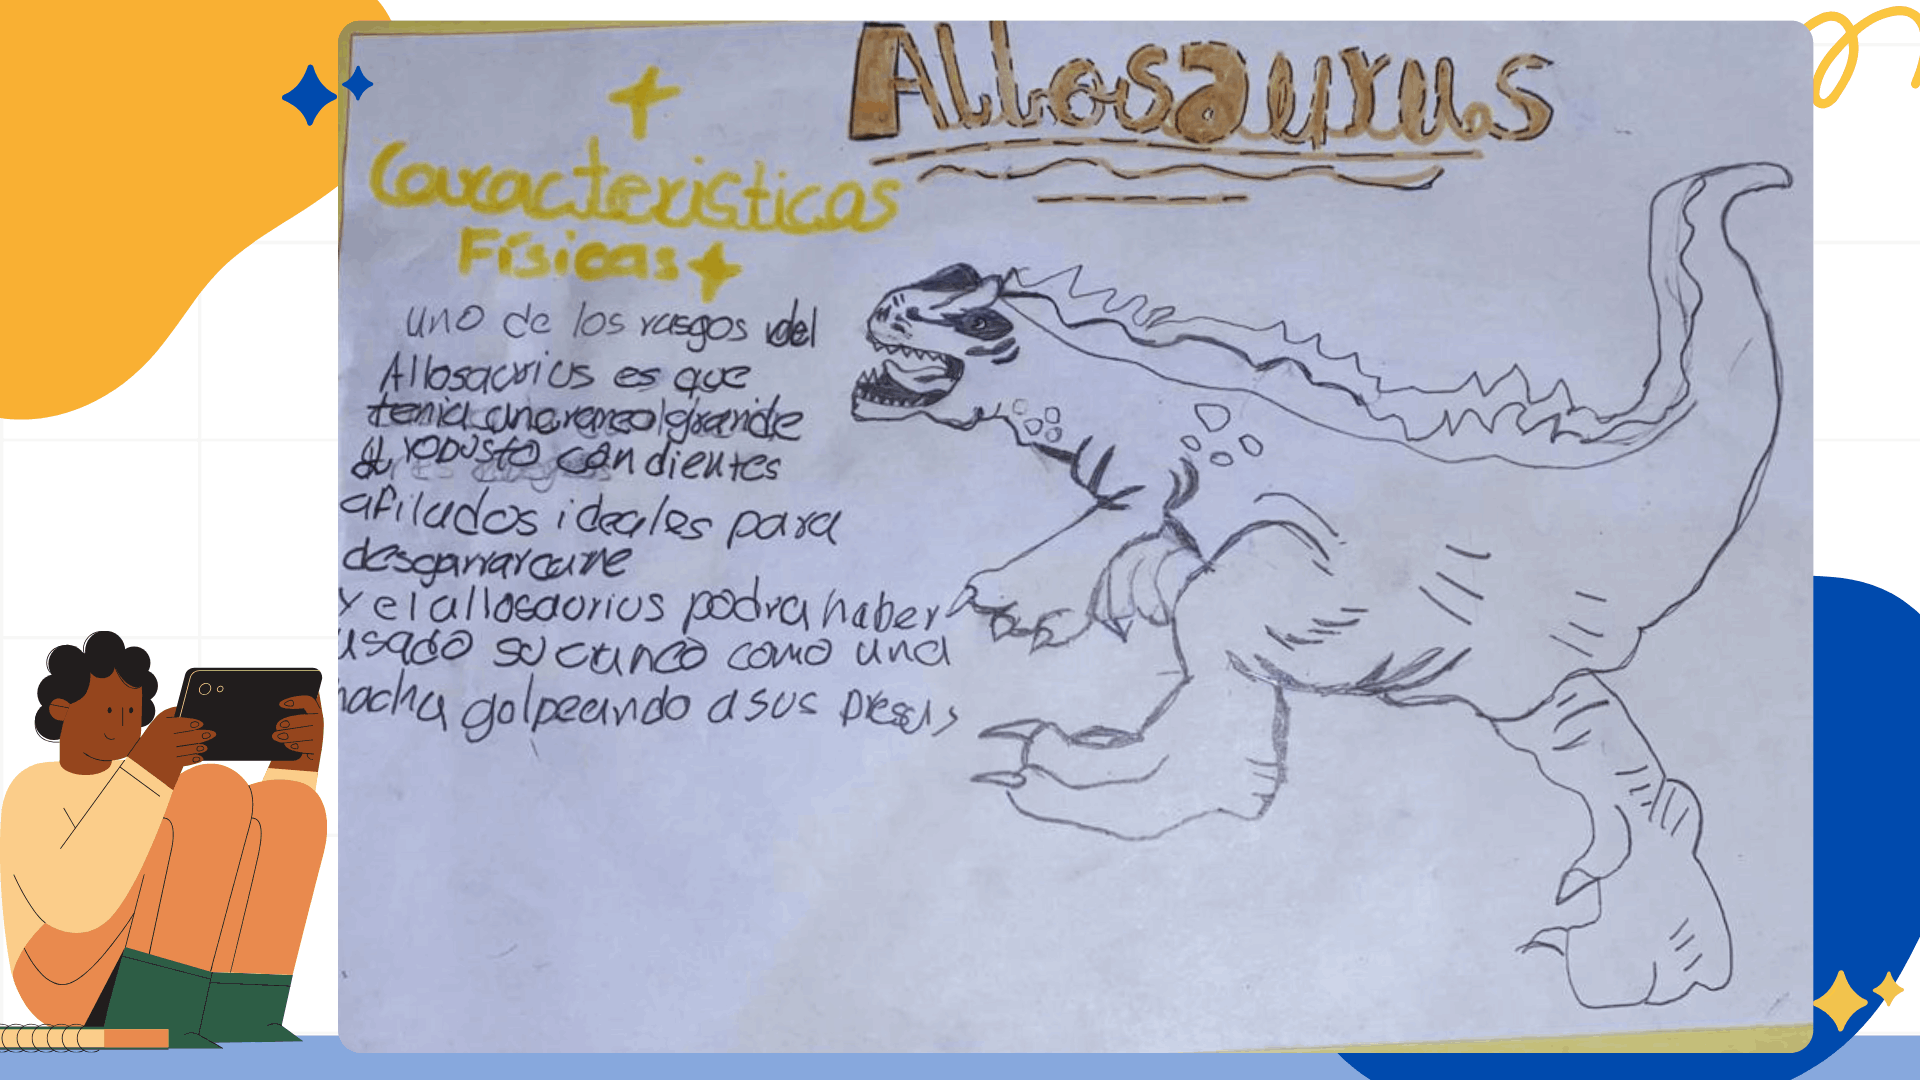 Allosaurus
Características
Físicas
uno de los rasgos del
Allosaurius es que
tenia un craneo grande
y robusto con dientes
afilados ideales para
desgarrar carne
y el allosaurius podra haber
usado su craneo como una
hacha golpeando a sus presas